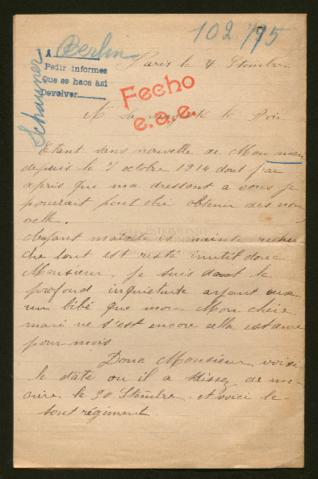 102/95
A Berlin
Pedir informes
que se hace así
Devolver
Schausner
Paris le 4
Fecho
e.a.e.
A Sa majesté le Roi
Etant sans nouvelle de Mon mari
depuis le 7 octobre 1914 dont j'ai
apris que ma dressant a vous je
pourait peut être obtenir des nou
velle.
Ayant maintes et mainte recher
che tout est resté inutil donc
Monsieur, je suis dans la
profond inquietute ayant eux
un bébé que mon Mon chère
mari ne s'est encore
pour moi
Donc Monsieur voici
le date ou il a
le 20 et voici le
sont régiment